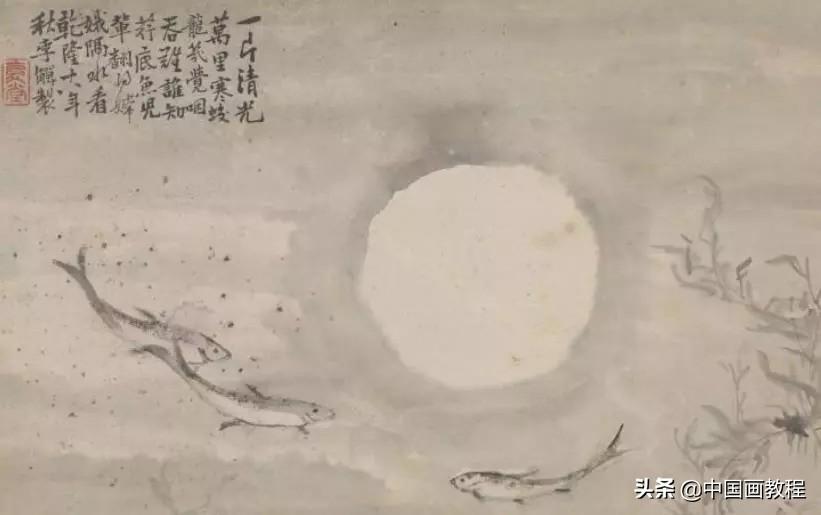 一片清光
萬里寒蛟
龍覺咽
吞難誰知
荇底魚兒
輩翻得嫦
娥隔水看
乾隆十八年
秋李鱓製
头条 @中国画教程